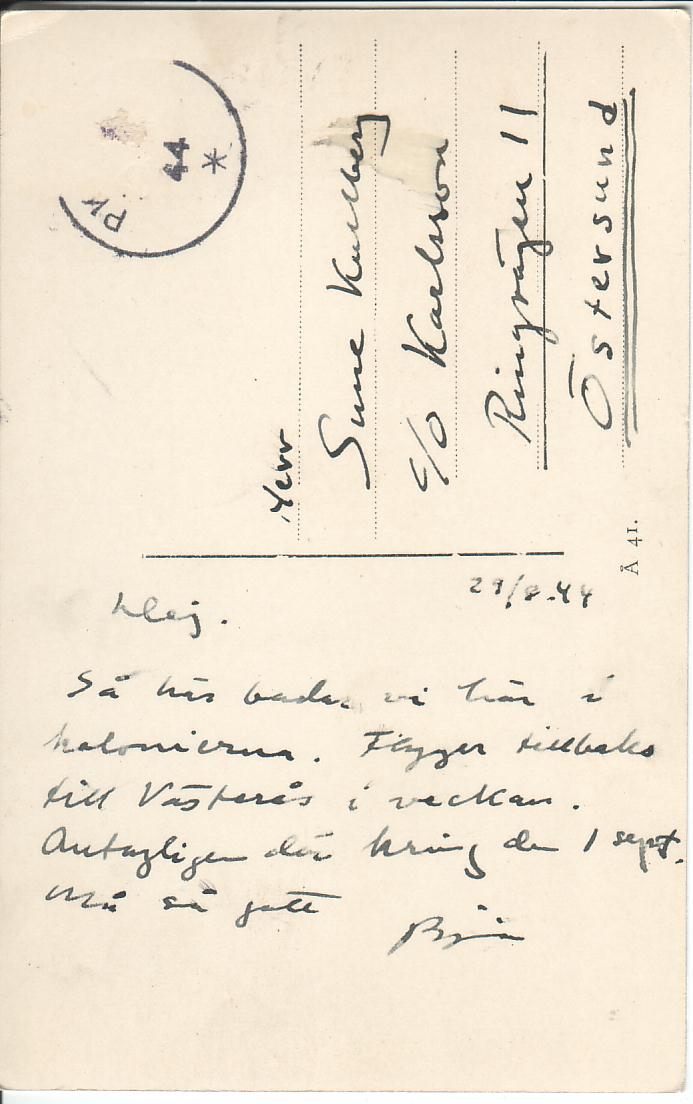 Hej.
29/8.44
Så här badar vi här i
kolonierna. Flyger tillbaks
till Västerås i veckan.
Antagligen där kring den 1 sept.
Må så gott
Herr
Sune Kullberg
c/o Karlsson
Ringvägen 11
Östersund
Å 41.
44
*